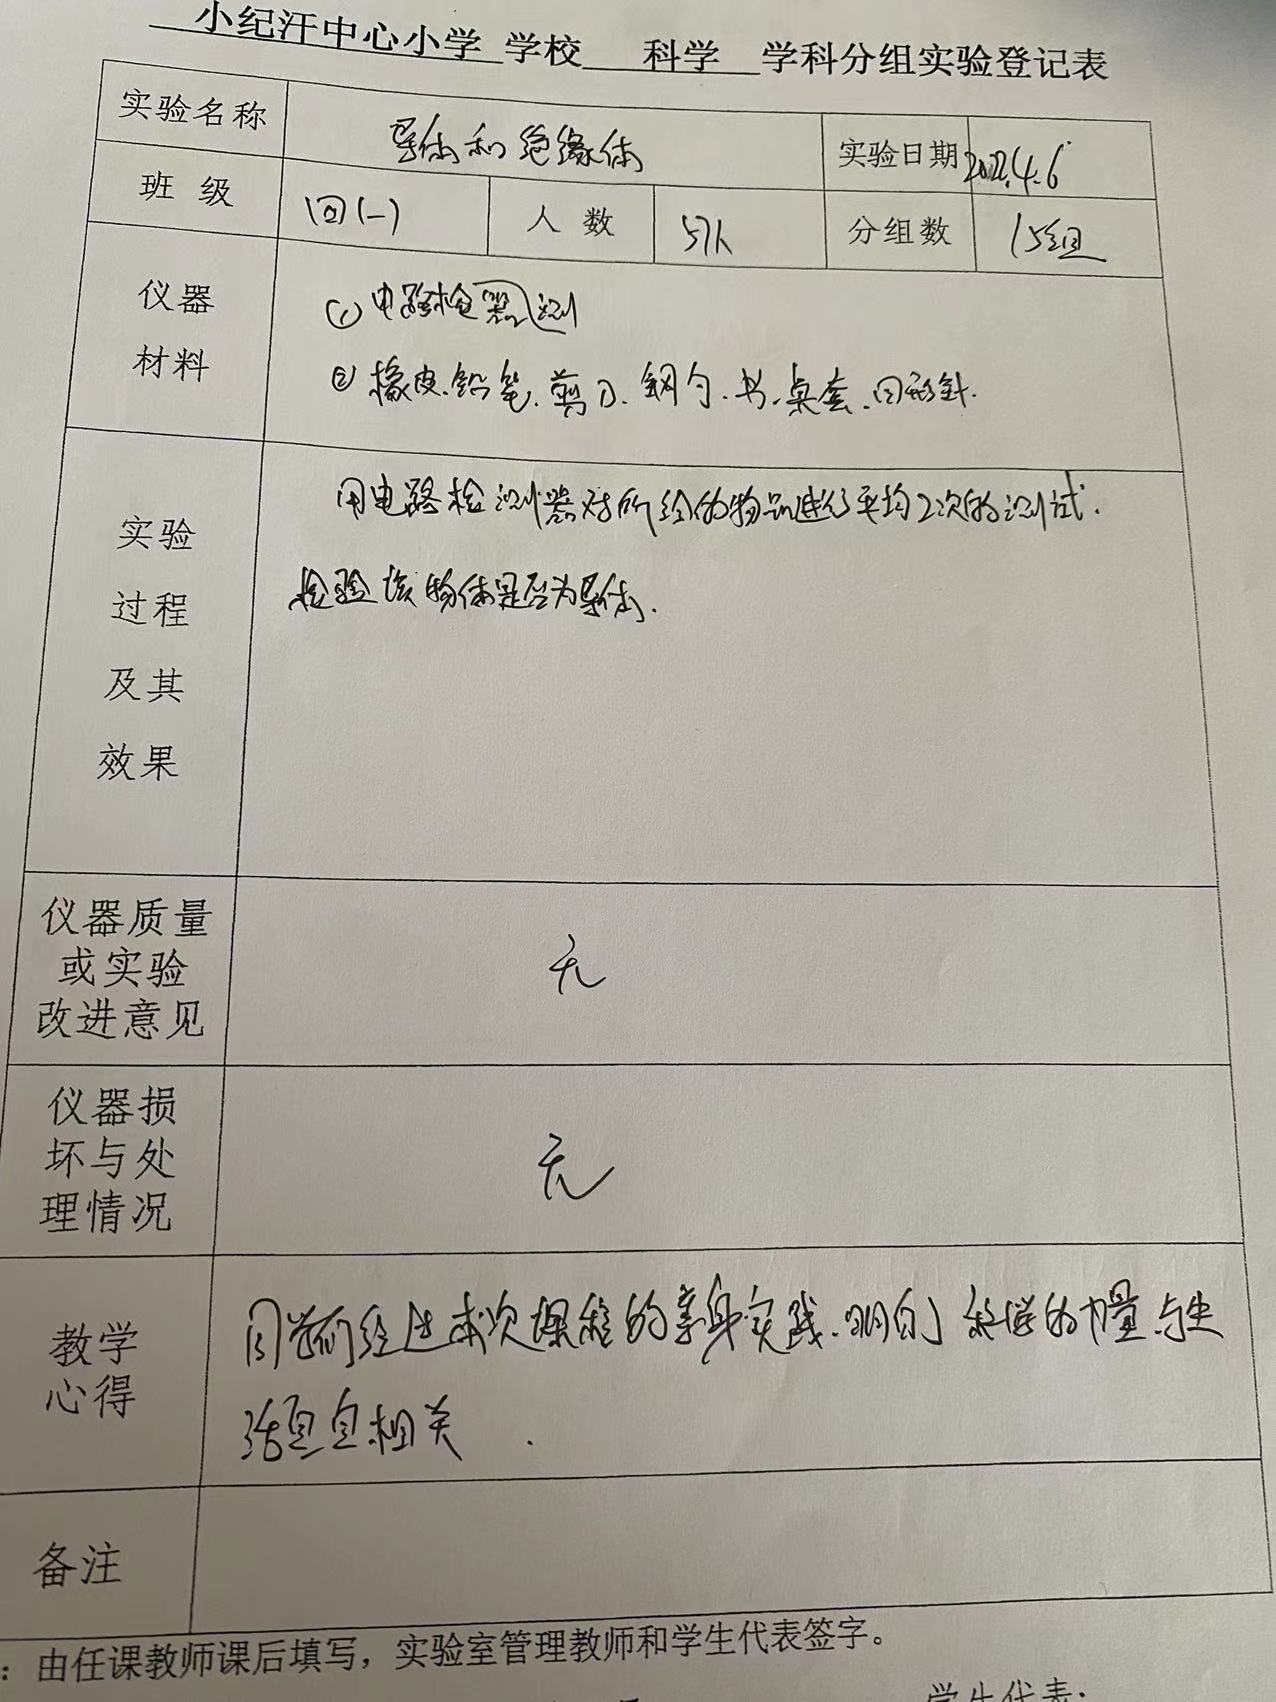 小纪汗中心小学 学校 科学 学科分组实验登记表
实验名称 导体和绝缘体 实验日期 2022.4.6
班 级 四(一) 人 数 57人 分组数 15组
仪器
材料
① 电路检器测
② 橡皮.铅笔.剪刀.钢勺.书.桌套.回形针.
实验
过程
及其
效果
用电路检测器对所给的物品进行平均2次的测试.
检验该物体是否为导体.
仪器质量
或实验
改进意见
无
仪器损
坏与处
理情况
无
教学
心得
同学们经过本次课程的亲身实践.明白了科学的力量与生
活息息相关.
备注
：由任课教师课后填写，实验室管理教师和学生代表签字。
学生代表: